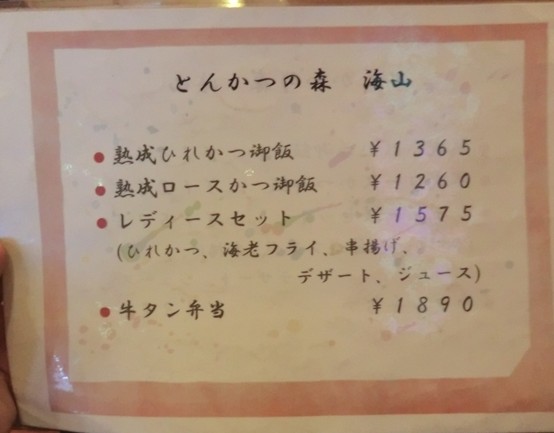 とんかつの森　海山
●熟成ひれかつ御飯　¥1365
●熟成ロースかつ御飯　¥1260
●レディースセット　¥1575
(ひれかつ、海老フライ、串揚げ、
デザート、ジュース)
●牛タン弁当　¥1890